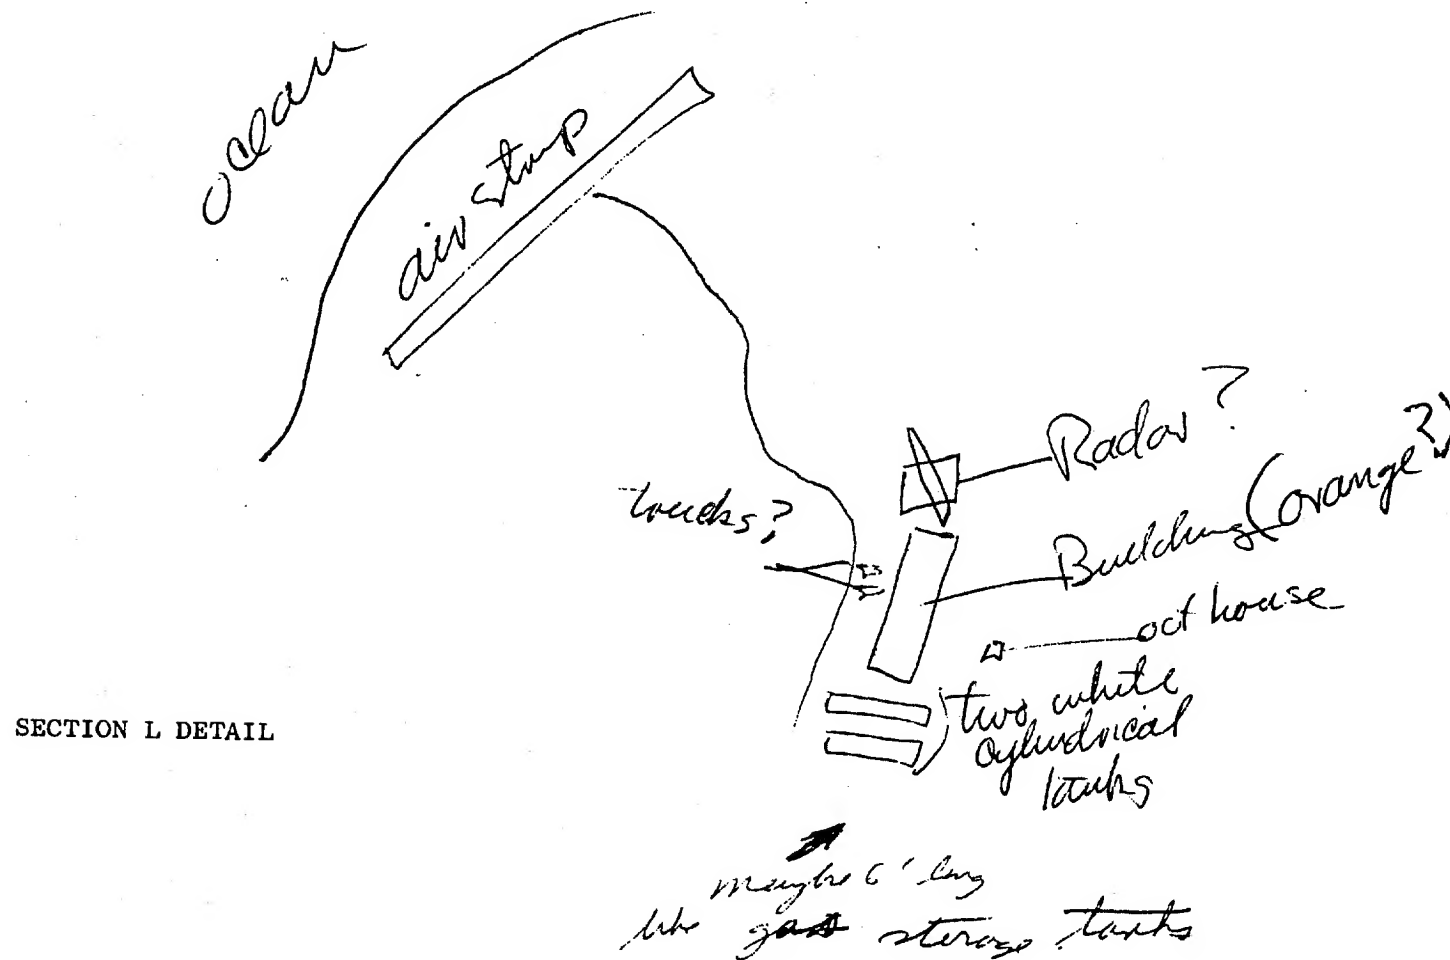 ocean
air strip
Radar?
Building (orange?)
trucks?
out house
two white
cylindrical
tanks
SECTION L DETAIL
maybe 6' long
like gas storage tanks